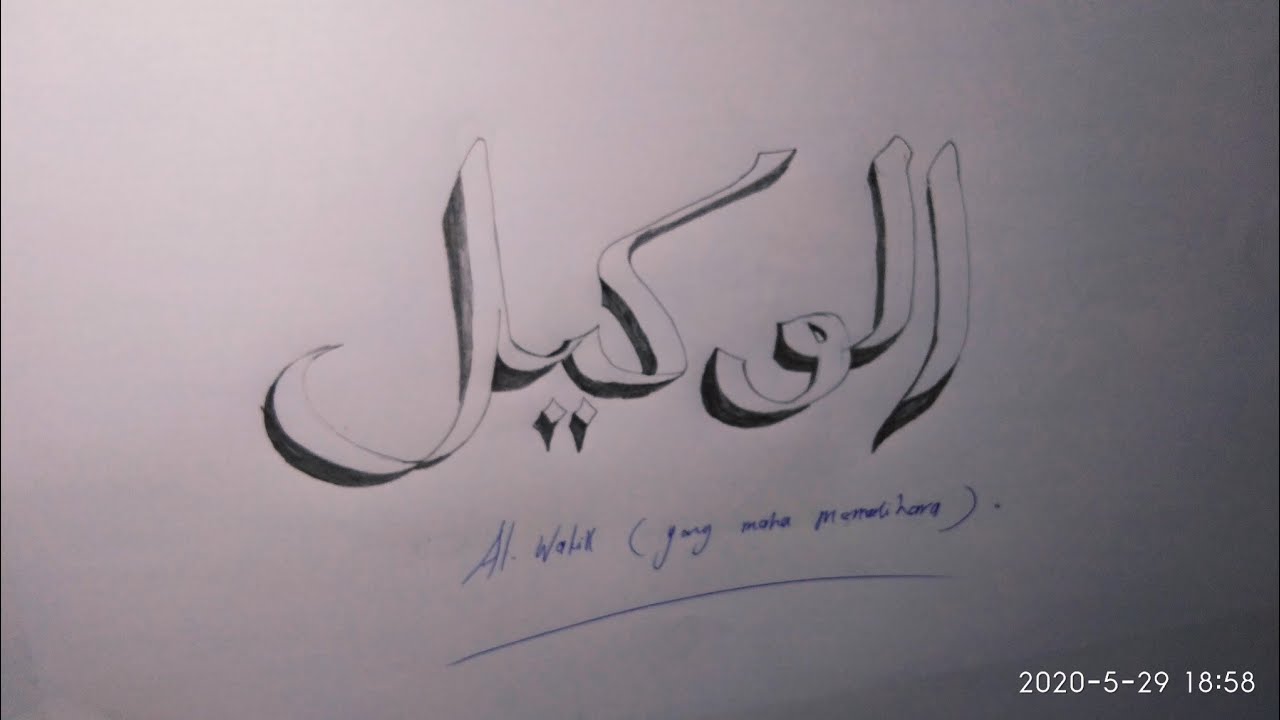 الوكيل
Al. Wakil (yang maha memelihara).
2020-5-29 18:58